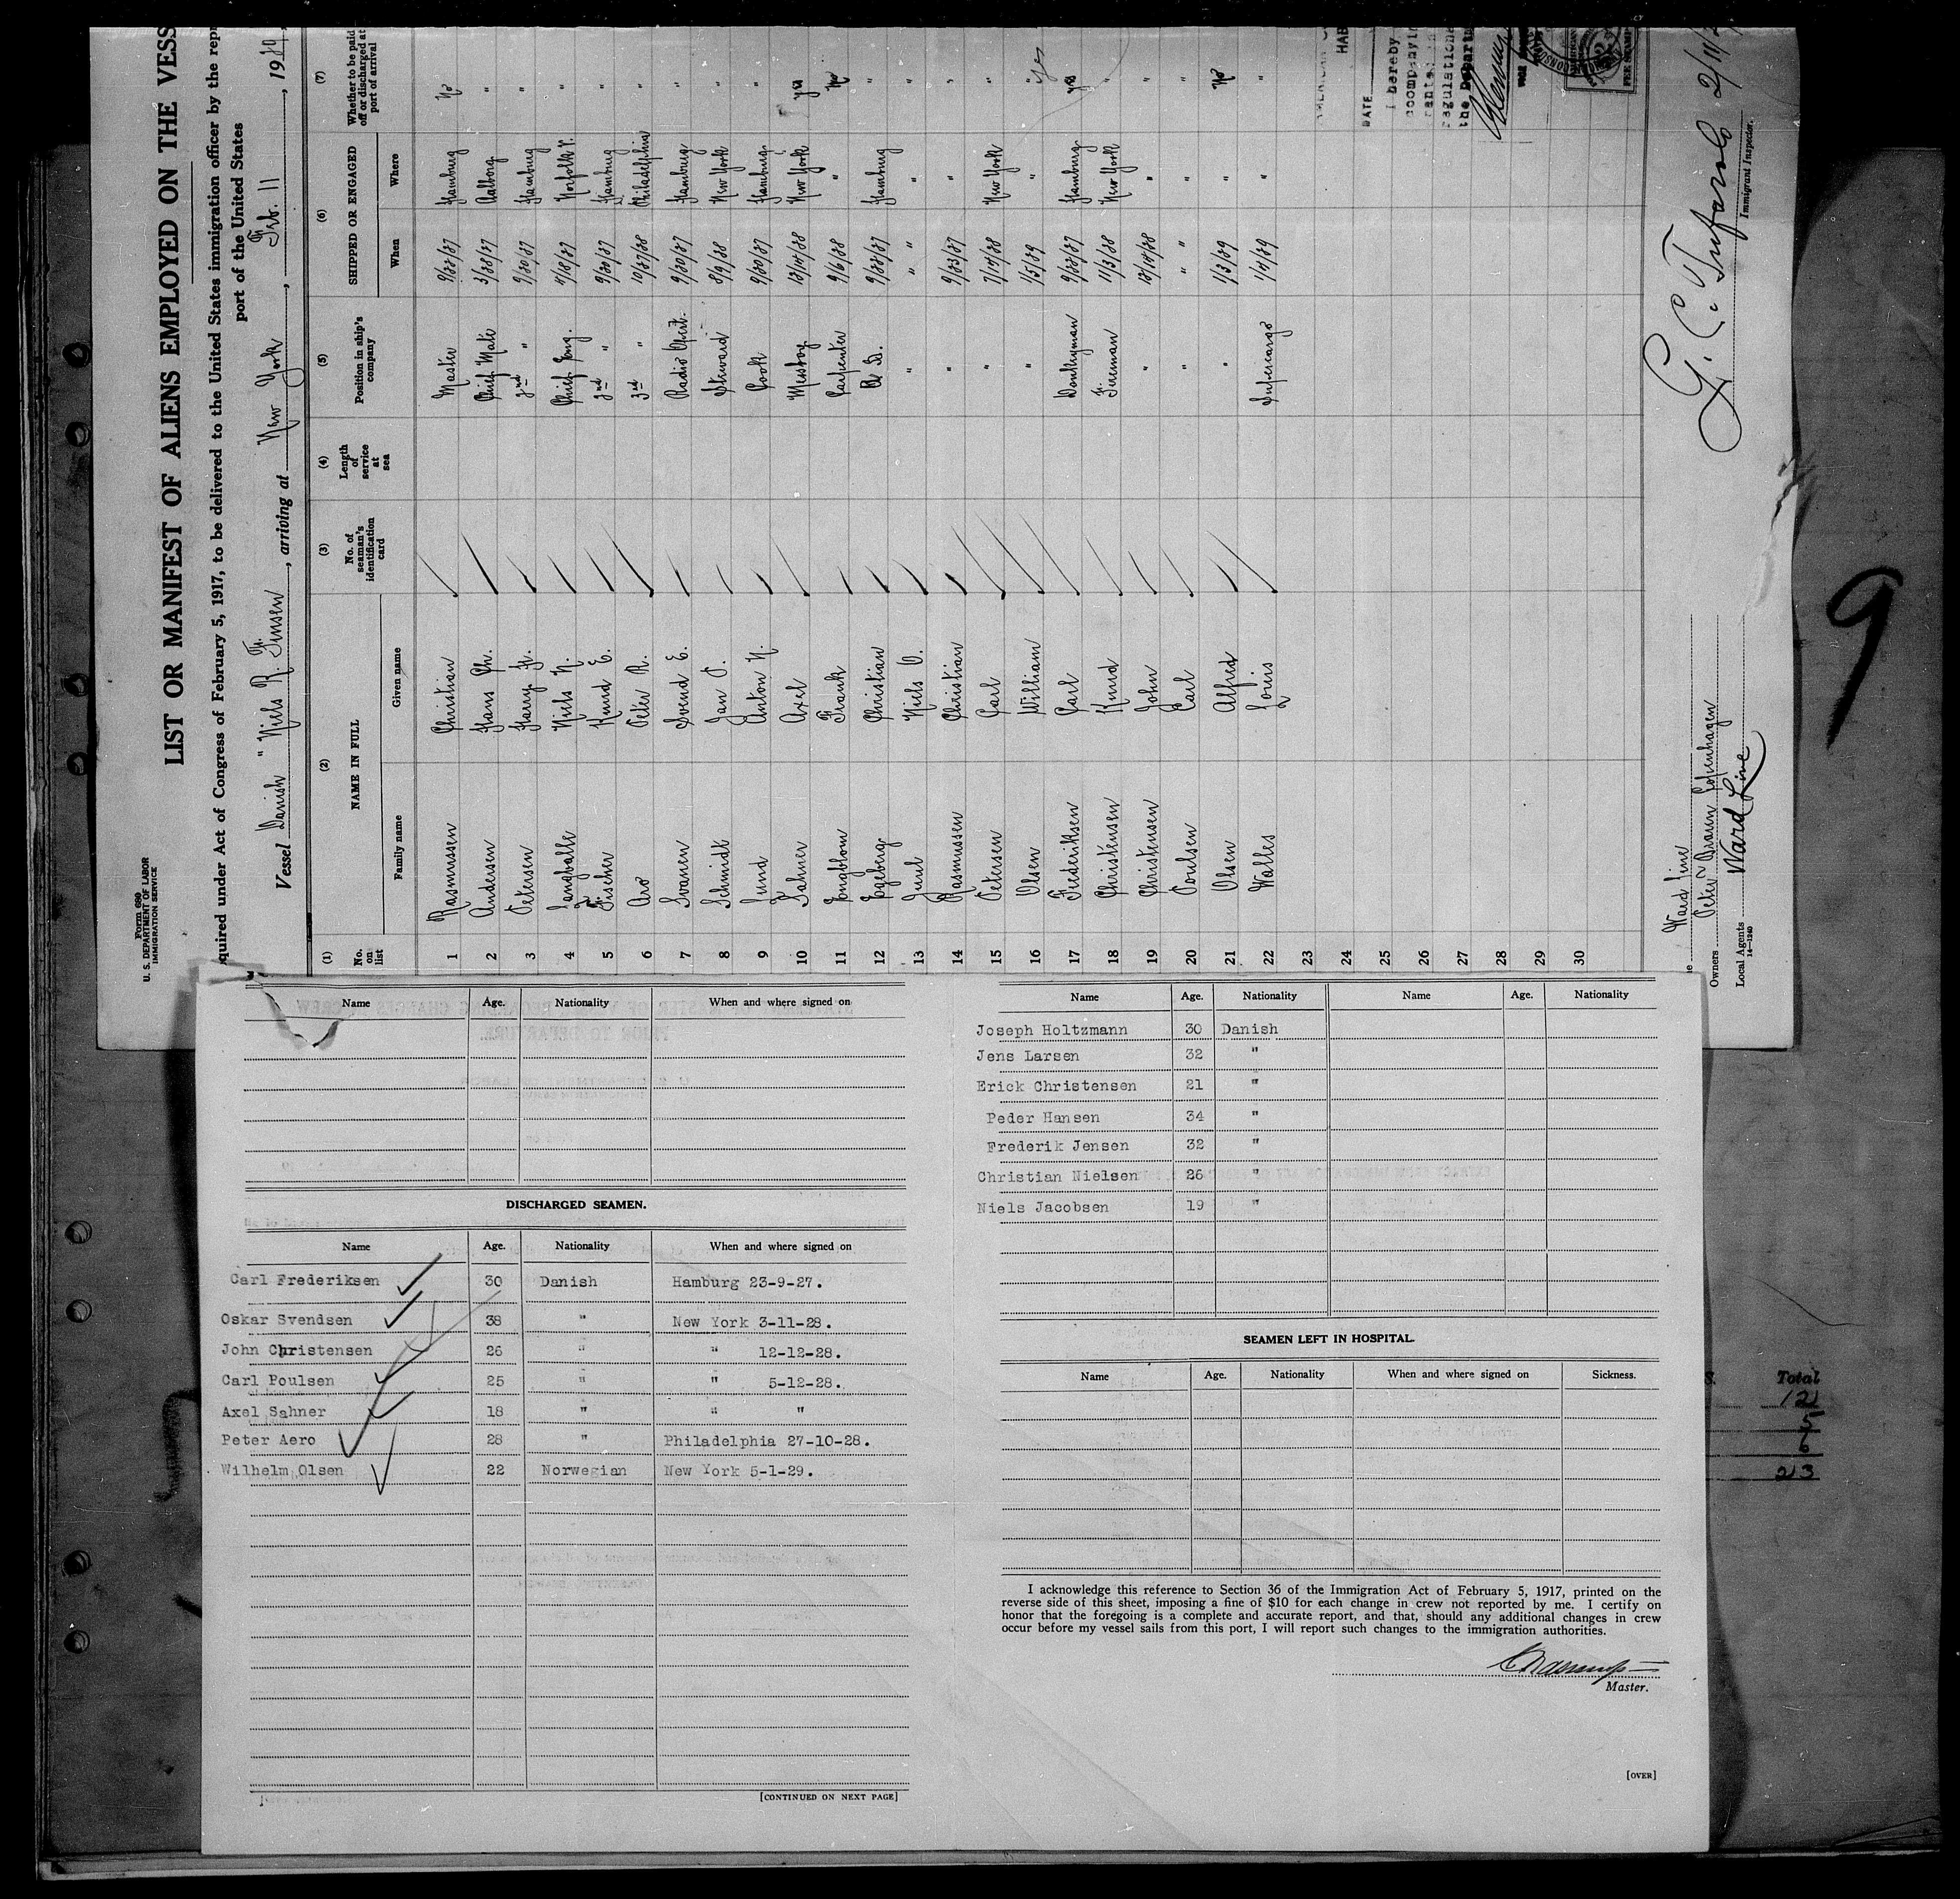 Form 680
U. S. DEPARTMENT OF LABOR
IMMIGRATION SERVICE
LIST OR MANIFEST OF ALIENS EMPLOYED ON THE VESS
quired under Act of Congress of February 5, 1917, to be delivered to the United States immigration officer by the repr
port of the United States
Vessel Danish "Niels R. Finsen, arriving at New York, Feb. 11, 1929
(1) (2) (3) (4) (5) (6) (7)
No. on list NAME IN FULL No. of seaman's identification card Length of service at sea Position in ship's company SHIPPED OR ENGAGED Whether to be paid off or discharged at port of arrival
Family name Given name When Where
1 Rasmussen Christian Master 9/22/27 Hamburg No
2 Andersen Hans Ph. Chief Mate 3/28/27 Aalborg "
3 Petersen Harry Fr. 2nd " 9/20/27 Hamburg "
4 Langballe Niels N. Chief Eng. 4/18/27 Norfolk V. "
5 Fischer Knud E. 2nd " 9/20/27 Hamburg "
6 Arö Peter R. 3rd " 10/27/28 Philadelphia "
7 Svanen Svend E. Radio Opert. 9/20/27 Hamburg "
8 Schmidt Jan J. Steward 8/9/28 New York "
9 Lund Anton N. Cook 9/20/27 Hamburg "
10 Sahner Axel Messboy 12/10/28 New York yes
11 Engblom Frank Carpenter 9/6/28 " No
12 Egeberg Christian A. B. 9/22/27 Hamburg "
13 Juul Niels O. " " " "
14 Rasmussen Christian " 9/23/27 " "
15 Petersen Carl " 7/10/28 New York "
16 Olsen William " 1/5/29 " yes
17 Frederiksen Carl Donkeyman 9/22/27 Hamburg yes
18 Christensen Knud Fireman 11/3/28 New York "
19 Christensen John " 12/10/28 " "
20 Poulsen Carl " " " "
21 Olsen Alfred " 1/3/29 " No
22 Walles Louis Supercargo 1/4/29 " "
23
24
25
26
27
28
29
30
Ward Line
Owners Peter Braun Copenhagen
Local Agents Ward Line
14—1240
G. C. Tufarolo 2/11/2
Immigrant Inspector.
HAB
DATE
I hereby
ccompanyin
regulation
the Departm
9
Name Age. Nationality When and where signed on
DISCHARGED SEAMEN.
Name Age. Nationality When and where signed on
Carl Frederiksen 30 Danish Hamburg 23-9-27.
Oskar Svendsen 38 " New York 3-11-28.
John Christensen 26 " " 12-12-28.
Carl Poulsen 25 " " 5-12-28.
Axel Sahner 18 " " "
Peter Aero 28 " Philadelphia 27-10-28.
Wilhelm Olsen 22 Norwegian New York 5-1-29.
[CONTINUED ON NEXT PAGE]
Name Age. Nationality Name Age. Nationality
Joseph Holtzmann 30 Danish
Jens Larsen 32 "
Erick Christensen 21 "
Peder Hansen 34 "
Frederik Jensen 32 "
Christian Nielsen 26 "
Niels Jacobsen 19 "
SEAMEN LEFT IN HOSPITAL.
Name Age. Nationality When and where signed on Sickness.
I acknowledge this reference to Section 36 of the Immigration Act of February 5, 1917, printed on the
reverse side of this sheet, imposing a fine of $10 for each change in crew not reported by me. I certify on
honor that the foregoing is a complete and accurate report, and that, should any additional changes in crew
occur before my vessel sails from this port, I will report such changes to the immigration authorities.
Master.
[OVER]
Total
12
5
6
23